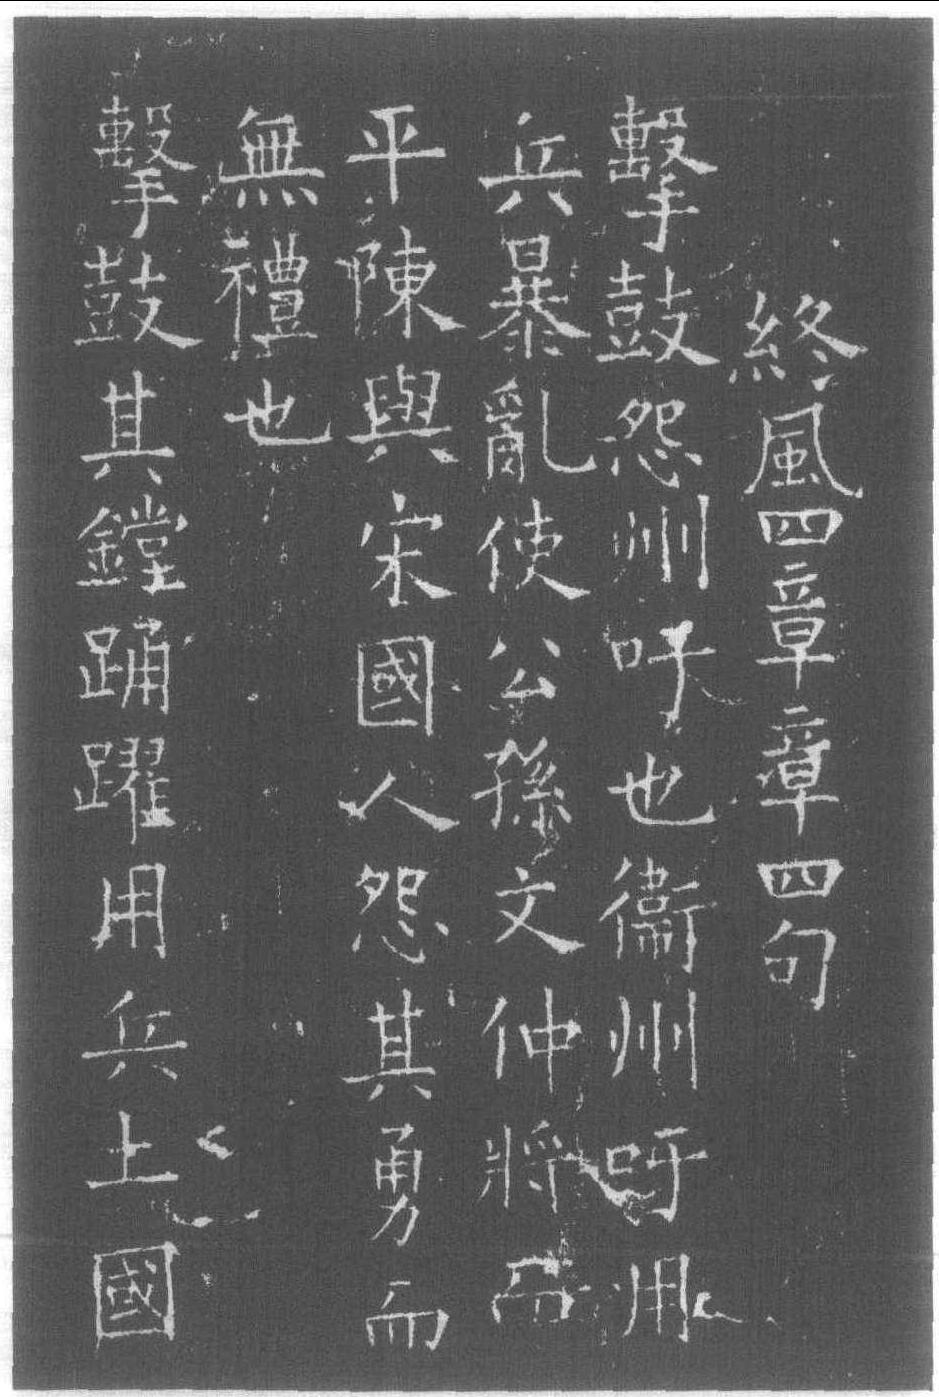 終風四章章四句
擊鼓怨州吁也衞州吁用
兵暴亂使公孫文仲將而
平陳與宋國人怨其勇而
無禮也
擊鼓其鏜踊躍用兵土國